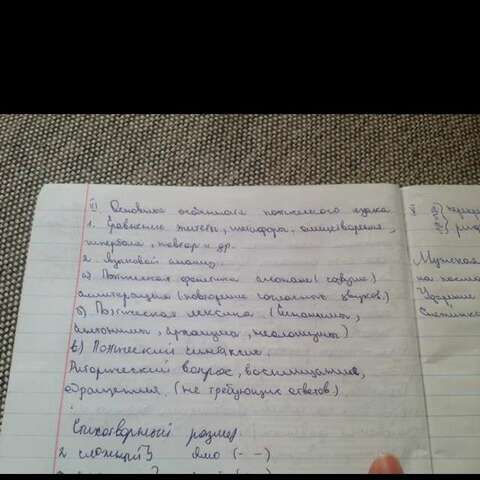 VI. Основные особенности поэтического языка
1. Сравнение, эпитеты, метафора, олицетворение,
гипербола, повтор и др.
2. Языковой анализ.
а) Поэтическая фонетика ассонанс (созвучие)
аллитерация (повторение согласных звуков)
б) Поэтическая лексика (синонимы,
антонимы, архаизмы, неологизмы)
в) Поэтический синтаксис.
Риторический вопрос, восклицание,
обращения. (не требующих ответов).
Стихотворный размер.
2 сложный } ямб (- -)
V
Мужская
на после
Ударение